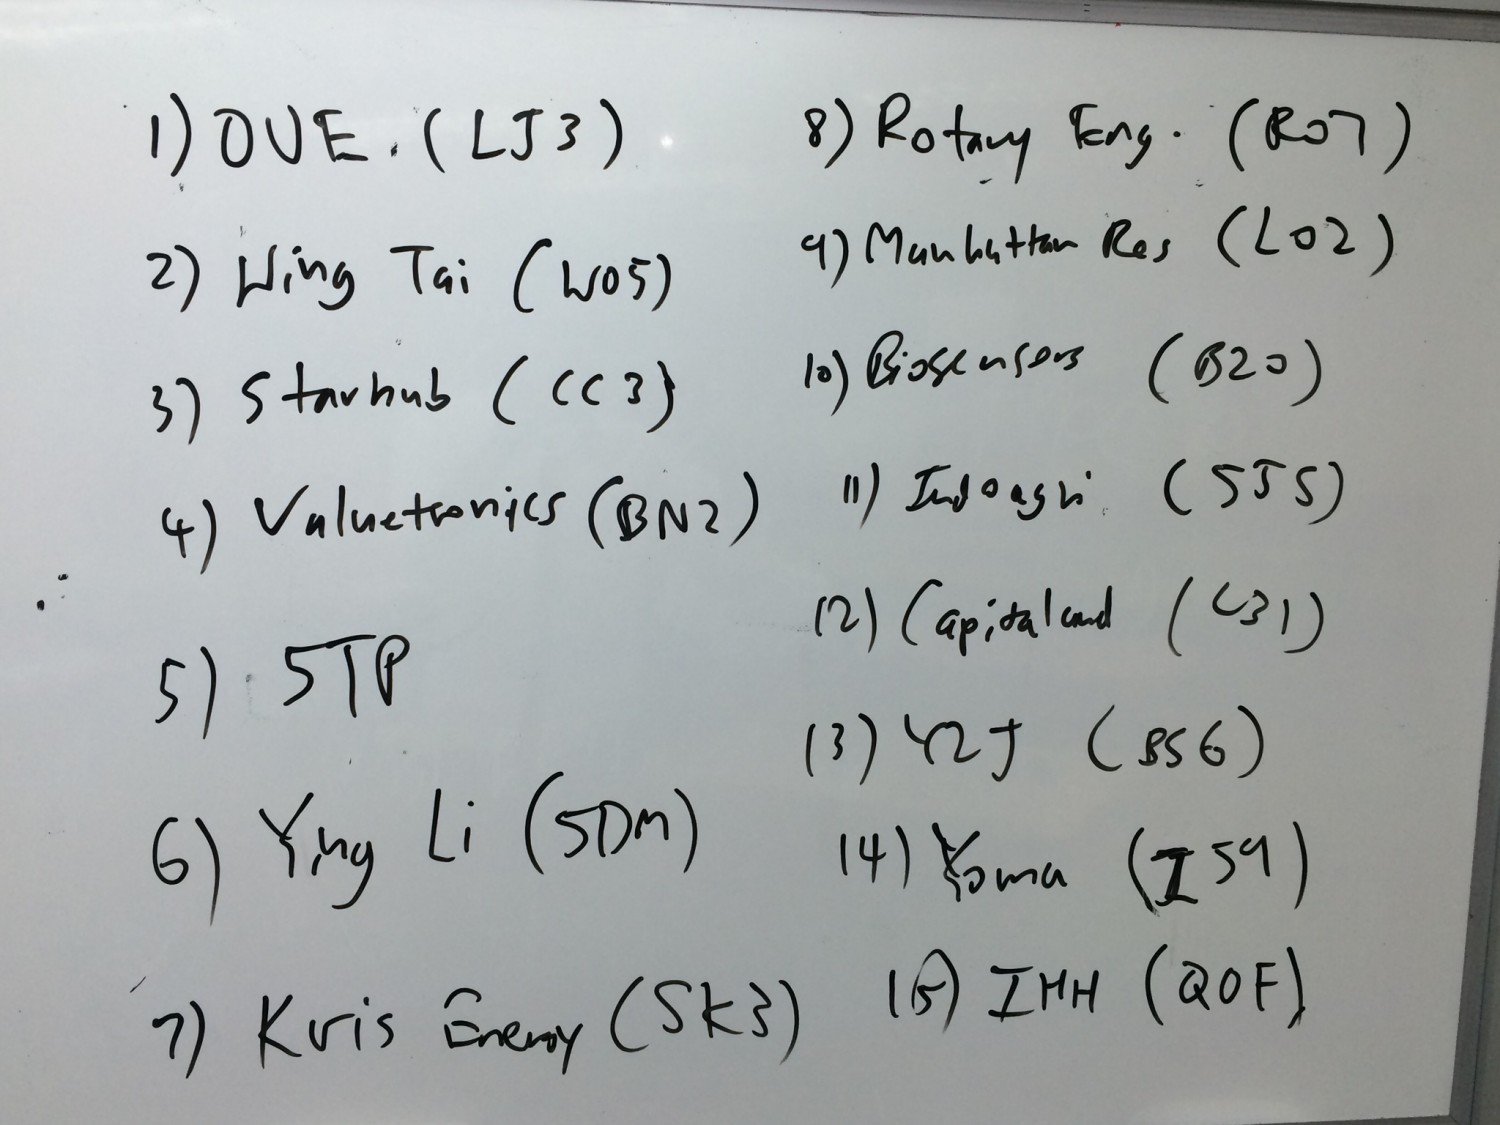 1) OUE. (LJ3)
2) Wing Tai (W05)
3) Starhub (CC3)
4) Valuetronics (BN2)
5) 5TP
6) Ying Li (5DM)
7) Kris Energy (SK3)
8) Rotary Eng. (R07)
9) Manhattan Res (L02)
10) Biosensors (B20)
11) Indoagri (5J5)
12) Capitaland (C31)
13) YZJ (BS6)
14) Yoma (I59)
15) IHH (Q0F)